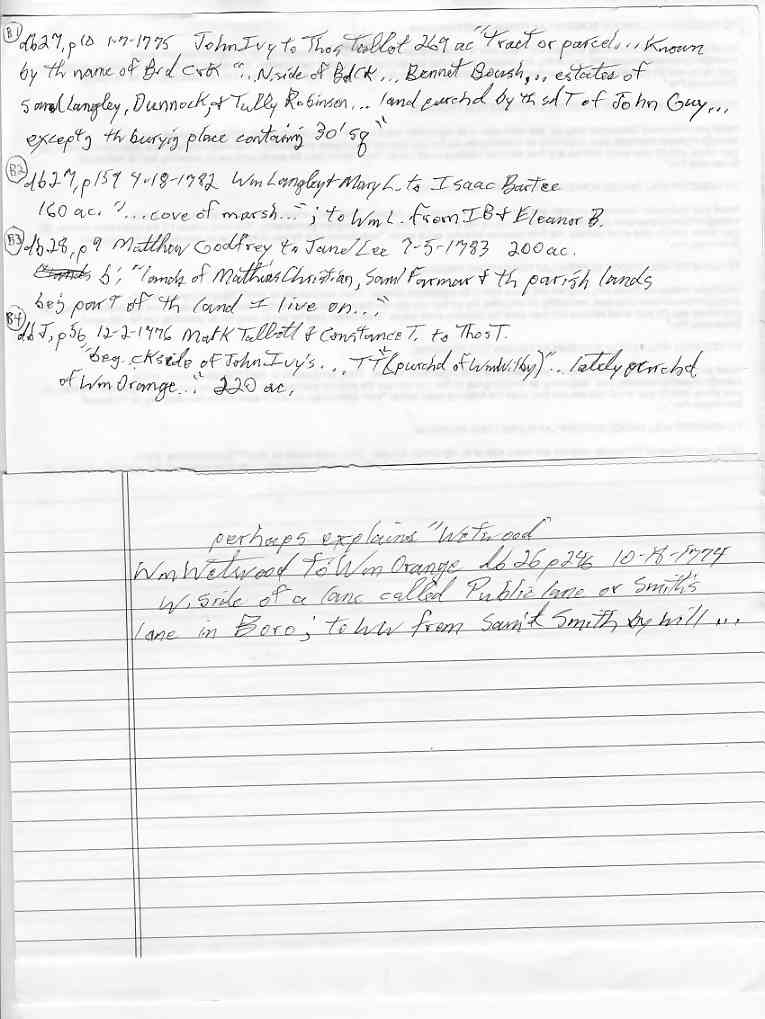 B1 db27, p10 1-7-1775 John Ivy to Thos Talbot 269 ac "tract or parcel... known
by th name of Brd Crk "...N. side of BdCk... Bennet Boush,... estates of
Saml Langley, Dunnock, & Tully Robinson... land purchd by th sd T of John Guy...
exceptg th buryig place containing 30' sq"
B2 db27, p159 4-18-1782 Wm Langley & Mary L. to Isaac Bartee
160 ac. "...cove of marsh..."; to Wm L. from IB & Eleanor B.
B3 db28, p9 Matthew Godfrey to Lee 7-5-1783 200 ac.
b; "lands of Mathias Christian, Saml Farmar & th parish lands
beig part of th land I live on..."
B4 db J, p56 12-2-1776 Matt Talbott & Constance T. to Thos T.
"beg. ck side of John Ivy's... TT (purchd of Wm Wilby)"... lately purchd
of Wm Orange..." 220 ac.
perhaps explains "Wetwood"
Wm Wetwood to Wm Orange db 26 p246 10-18-1774
W. side of a lane called Public lane or Smith's
lane in Boro; to WW from Saml Smith by will ...